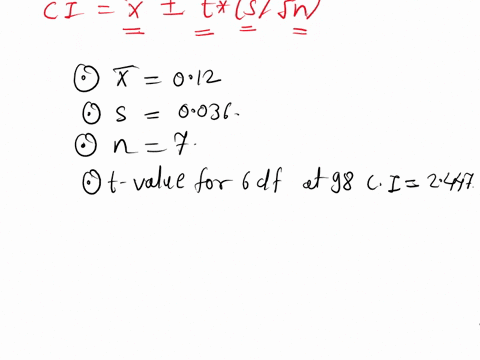 CI = x̄ ± t*(s/√n)
⊙ x̄ = 0.12
⊙ s = 0.036.
⊙ n = 7.
⊙ t-value for 6 df at 98 C.I = 2.447